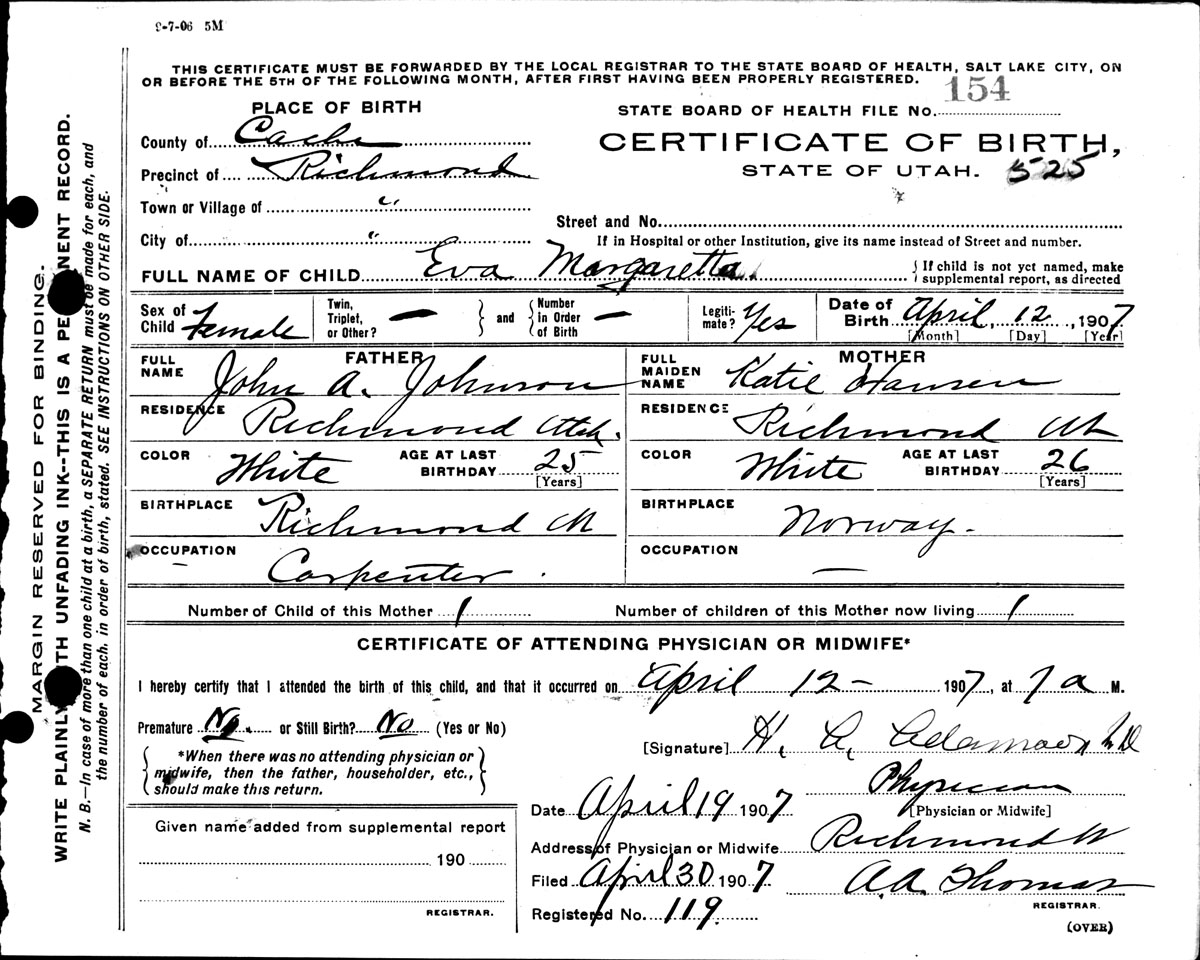 9-7-06 5M
THIS CERTIFICATE MUST BE FORWARDED BY THE LOCAL REGISTRAR TO THE STATE BOARD OF HEALTH, SALT LAKE CITY, ON
OR BEFORE THE 5TH OF THE FOLLOWING MONTH, AFTER FIRST HAVING BEEN PROPERLY REGISTERED.
PLACE OF BIRTH
STATE BOARD OF HEALTH FILE No. 154
County of Cache
CERTIFICATE OF BIRTH,
Precinct of Richmond
STATE OF UTAH. 525
Town or Village of "
Street and No.
City of "
If in Hospital or other Institution, give its name instead of Street and number.
FULL NAME OF CHILD Eva Margaretta
If child is not yet named, make
supplemental report, as directed
Sex of Child Female
Twin, Triplet, or Other? —
and
Number in Order of Birth —
Legiti-mate? Yes
Date of Birth April, 12, 1907
[Month] [Day] [Year]
FATHER
FULL NAME John A. Johnson
RESIDENCE Richmond Utah.
COLOR White
AGE AT LAST BIRTHDAY 25
[Years]
BIRTHPLACE Richmond
OCCUPATION
Carpenter.
MOTHER
FULL MAIDEN NAME Katie Hansen
RESIDENCE Richmond Ut
COLOR White
AGE AT LAST BIRTHDAY 26
[Years]
BIRTHPLACE Norway.
OCCUPATION —
Number of Child of this Mother 1
Number of children of this Mother now living 1
CERTIFICATE OF ATTENDING PHYSICIAN OR MIDWIFE*
I hereby certify that I attended the birth of this child, and that it occurred on April 12 – 1907, at 7 a M.
Premature No. or Still Birth? No (Yes or No)
[Signature] H. A. Adamson MD
*When there was no attending physician or
midwife, then the father, householder, etc.,
should make this return.
Physician
[Physician or Midwife]
Date April 19 1907
Address of Physician or Midwife Richmond
Filed April 30 1907
A. A. Thomas
REGISTRAR.
Registered No. 119.
(OVER)
Given name added from supplemental report
190
REGISTRAR.
MARGIN RESERVED FOR BINDING.
WRITE PLAINLY WITH UNFADING INK--THIS IS A PERMANENT RECORD.
N. B.—In case of more than one child at a birth, a SEPARATE RETURN must be made for each, and
the number of each, in order of birth, stated. SEE INSTRUCTIONS ON OTHER SIDE.